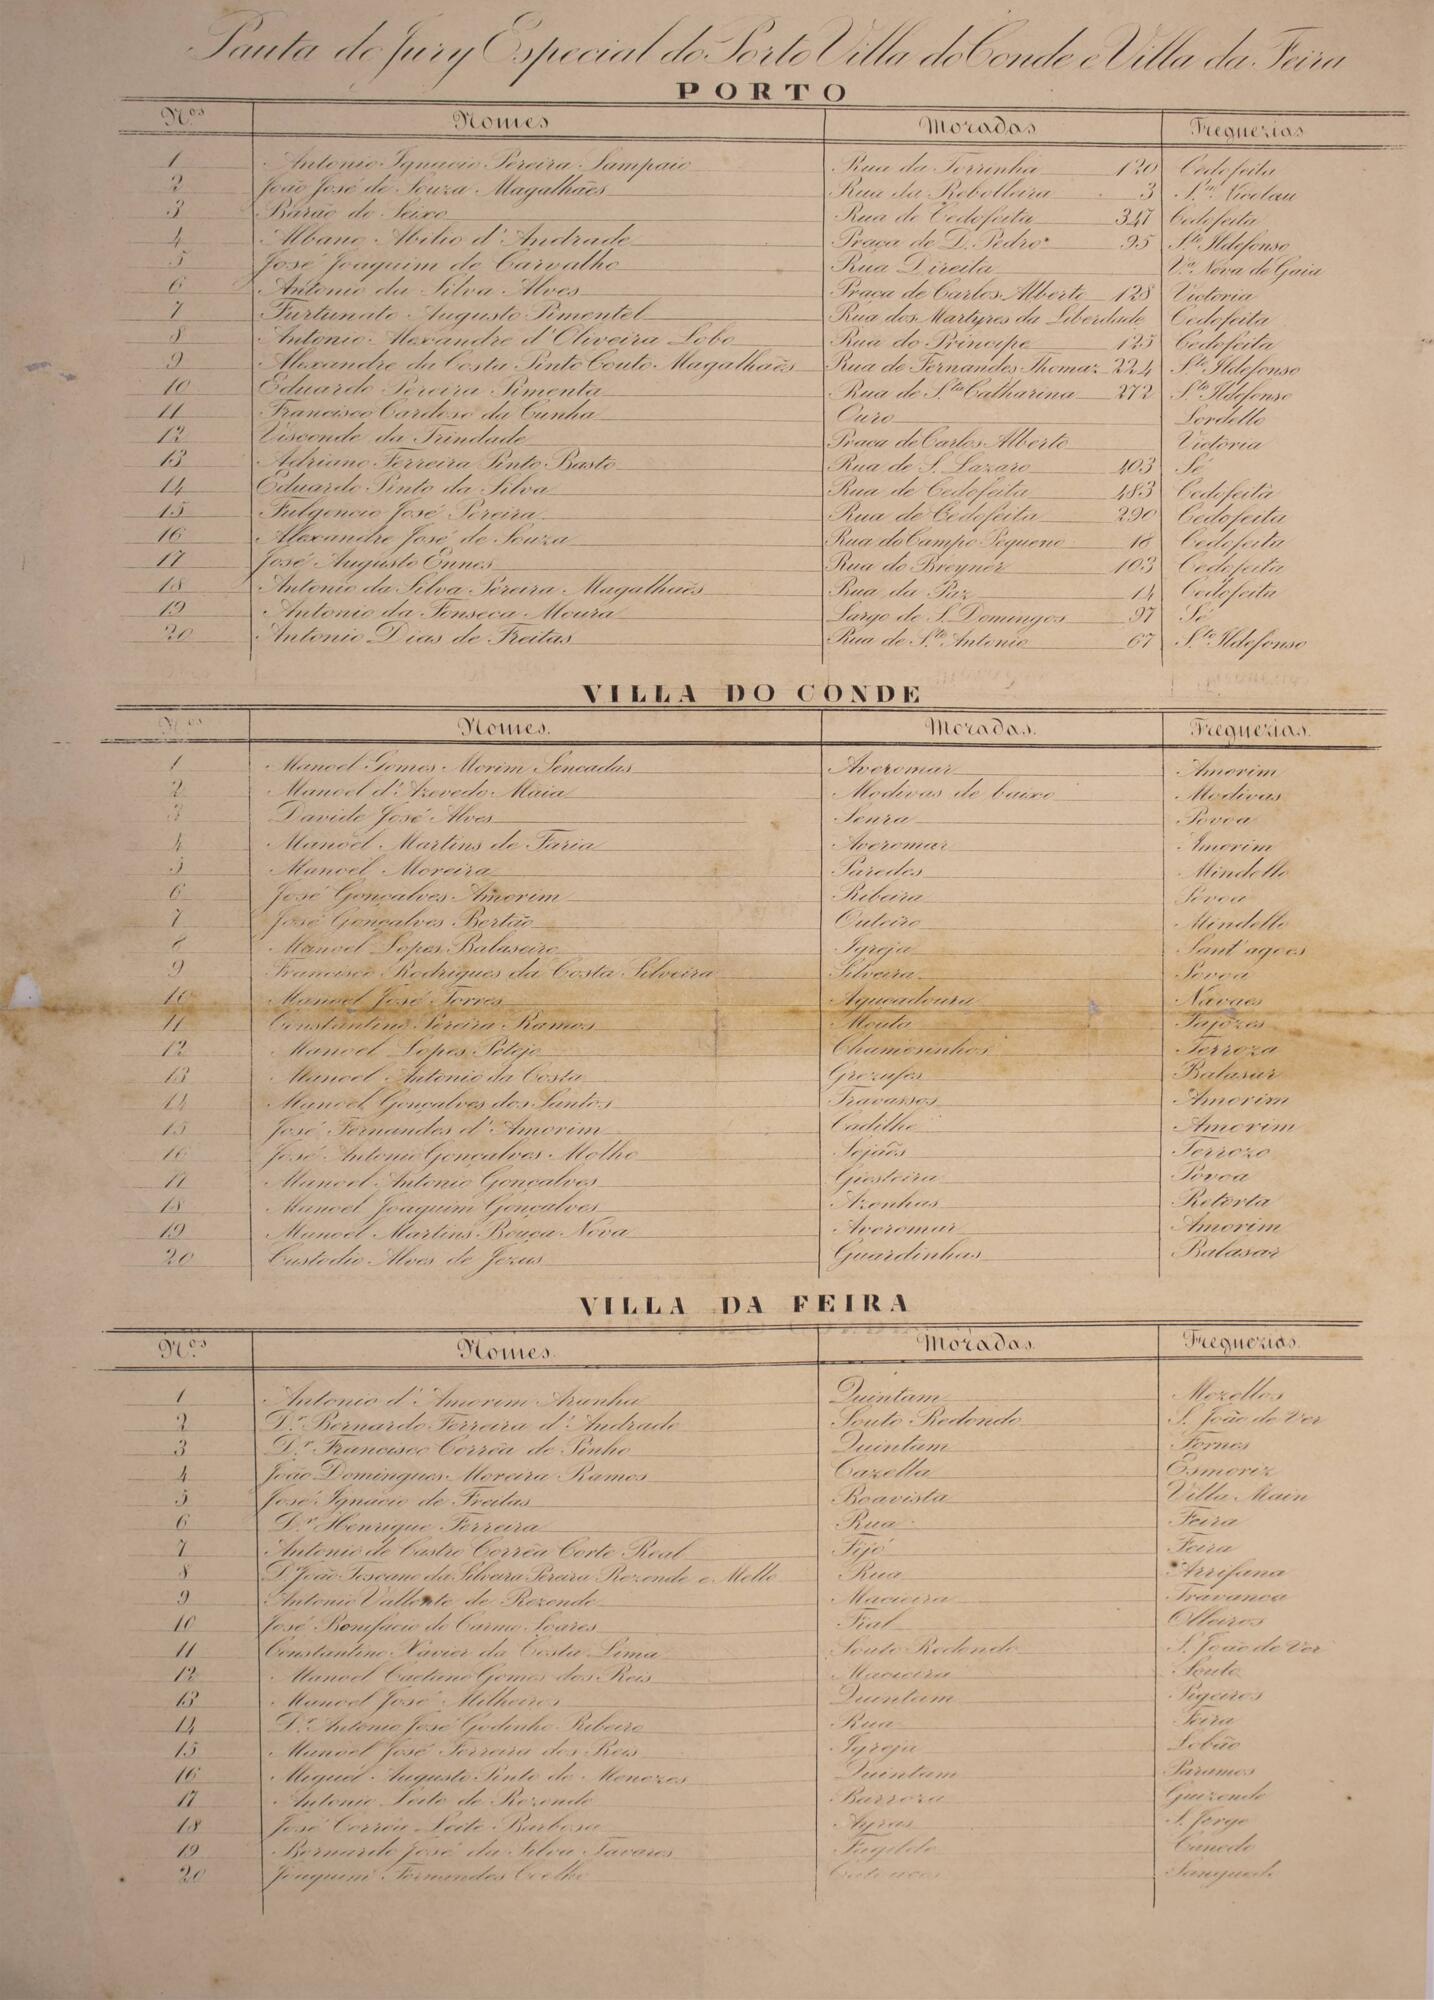 Pauta do Jury Especial do Porto Villa do Conde e Villa da Feira
PORTO
N.os Nomes Moradas Freguezias
1 Antonio Ignacio Pereira Sampaio Rua da Torrinha 120 Cedofeita
2 João José de Souza Magalhães Rua da Rebolleira 3 S. Nicolau
3 Barão do Seixo Rua de Cedofeita 347 Cedofeita
4 Albano Abilio d'Andrade Praça de D. Pedro 95 S.to Ildefonso
5 José Joaquim de Carvalho Rua Direita V.a Nova de Gaia
6 Antonio da Silva Alves Praça de Carlos Alberto 128 Victoria
7 Furtunato Augusto Pimentel Rua dos Martyres da Liberdade Cedofeita
8 Antonio Alexandre d'Oliveira Lobo Rua do Principe 125 Cedofeita
9 Alexandre da Costa Pinto Couto Magalhães Rua de Fernandes Thomaz 224 S.to Ildefonso
10 Eduardo Pereira Pimenta Rua de S.ta Catharina 272 S.to Ildefonso
11 Francisco Cardoso da Cunha Ouro Lordello
12 Visconde da Trindade Praça de Carlos Alberto Victoria
13 Adriano Ferreira Pinto Basto Rua de S. Lazaro 403 Sé
14 Eduardo Pinto da Silva Rua de Cedofeita 483 Cedofeita
15 Fulgencio José Pereira Rua de Cedofeita 290 Cedofeita
16 Alexandre José de Souza Rua do Campo Pequeno 18 Cedofeita
17 José Augusto Ennes Rua do Breyner 103 Cedofeita
18 Antonio da Silva Pereira Magalhães Rua da Paz 14 Cedofeita
19 Antonio da Fonseca Moura Largo de S. Domingos 97 Sé
20 Antonio Dias de Freitas Rua de S.to Antonio 67 S.to Ildefonso
VILLA DO CONDE
N.os Nomes. Moradas. Freguezias.
1 Manoel Gomes Morim Sencadas Averomar Amorim
2 Manoel d'Azevedo Maia Modivas de baixo Modivas
3 Davide José Alves Senra Povoa
4 Manoel Martins de Faria Averomar Amorim
5 Manoel Moreira Paredes Mindello
6 José Gonçalves Amorim Ribeira Povoa
7 José Gonçalves Bertão Outeiro Mindello
8 Manoel Lopes Balaseiro Igreja Sant'agoes
9 Francisco Rodrigues da Costa Silveira Silveira Povoa
10 Manoel José Torres Aqueadoura Navaes
11 Constantino Pereira Ramos Mouta Fajozes
12 Manoel Lopes Petejo Chamosinhos Terroza
13 Manoel Antonio da Costa Grezufes Balasar
14 Manoel Gonçalves dos Santos Travassos Amorim
15 José Fernandes d'Amorim Cadilhe Amorim
16 José Antonio Gonçalves Molho Sejães Terrozo
17 Manoel Antonio Gonçalves Giesteira Povoa
18 Manoel Joaquim Gonçalves Azenhas Retorta
19 Manoel Martins Bouça Nova Averomar Amorim
20 Custodio Alves de Jezus Guardinhas Balasar
VILLA DA FEIRA
N.os Nomes. Moradas. Freguezias.
1 Antonio d'Amorim Aranha Quintam Mozellos
2 D.r Bernardo Ferreira d'Andrade Souto Redondo S. João de Ver
3 D.r Francisco Corrêa de Pinho Quintam Fornos
4 João Domingues Moreira Ramos Cazella Esmoriz
5 José Ignacio de Freitas Boavista Villa Main
6 D.r Henrique Ferreira Rua Feira
7 Antonio de Castro Corrêa Corte Real Fijó Feira
8 D. João Toscano da Silvara Pereira Rezende e Mello Rua Arrifana
9 Antonio Vallente de Rezende Macieira Travanca
10 José Bonifacio do Carmo Soares Fial Olleiros
11 Constantino Xavier da Costa Lima Souto Redondo S. João de Ver
12 Manoel Caetano Gomes dos Reis Macieira Souto
13 Manoel José Milheiros Quintam Pigeiros
14 D.r Antonio José Godinho Ribeiro Rua Feira
15 Manoel José Ferreira dos Reis Igreja Lobão
16 Miguel Augusto Pinto de Menezes Quintam Paramos
17 Antonio Leite de Rezende Barroza Guizende
18 José Corrêa Leite Barbosa Ayras S. Jorge
19 Bernardo José da Silva Tavares Fagilde Canedo
20 Joaquim Fernandes Coelho Sanguedo